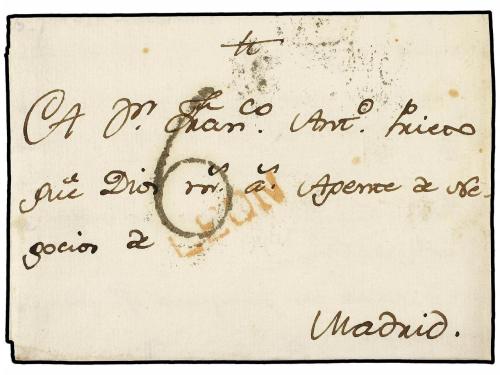 A Dn. Franco. Anto. Prieto
gue. Dios ms. as. Agente de Ne-
gocios de
6
LEON
Madrid.